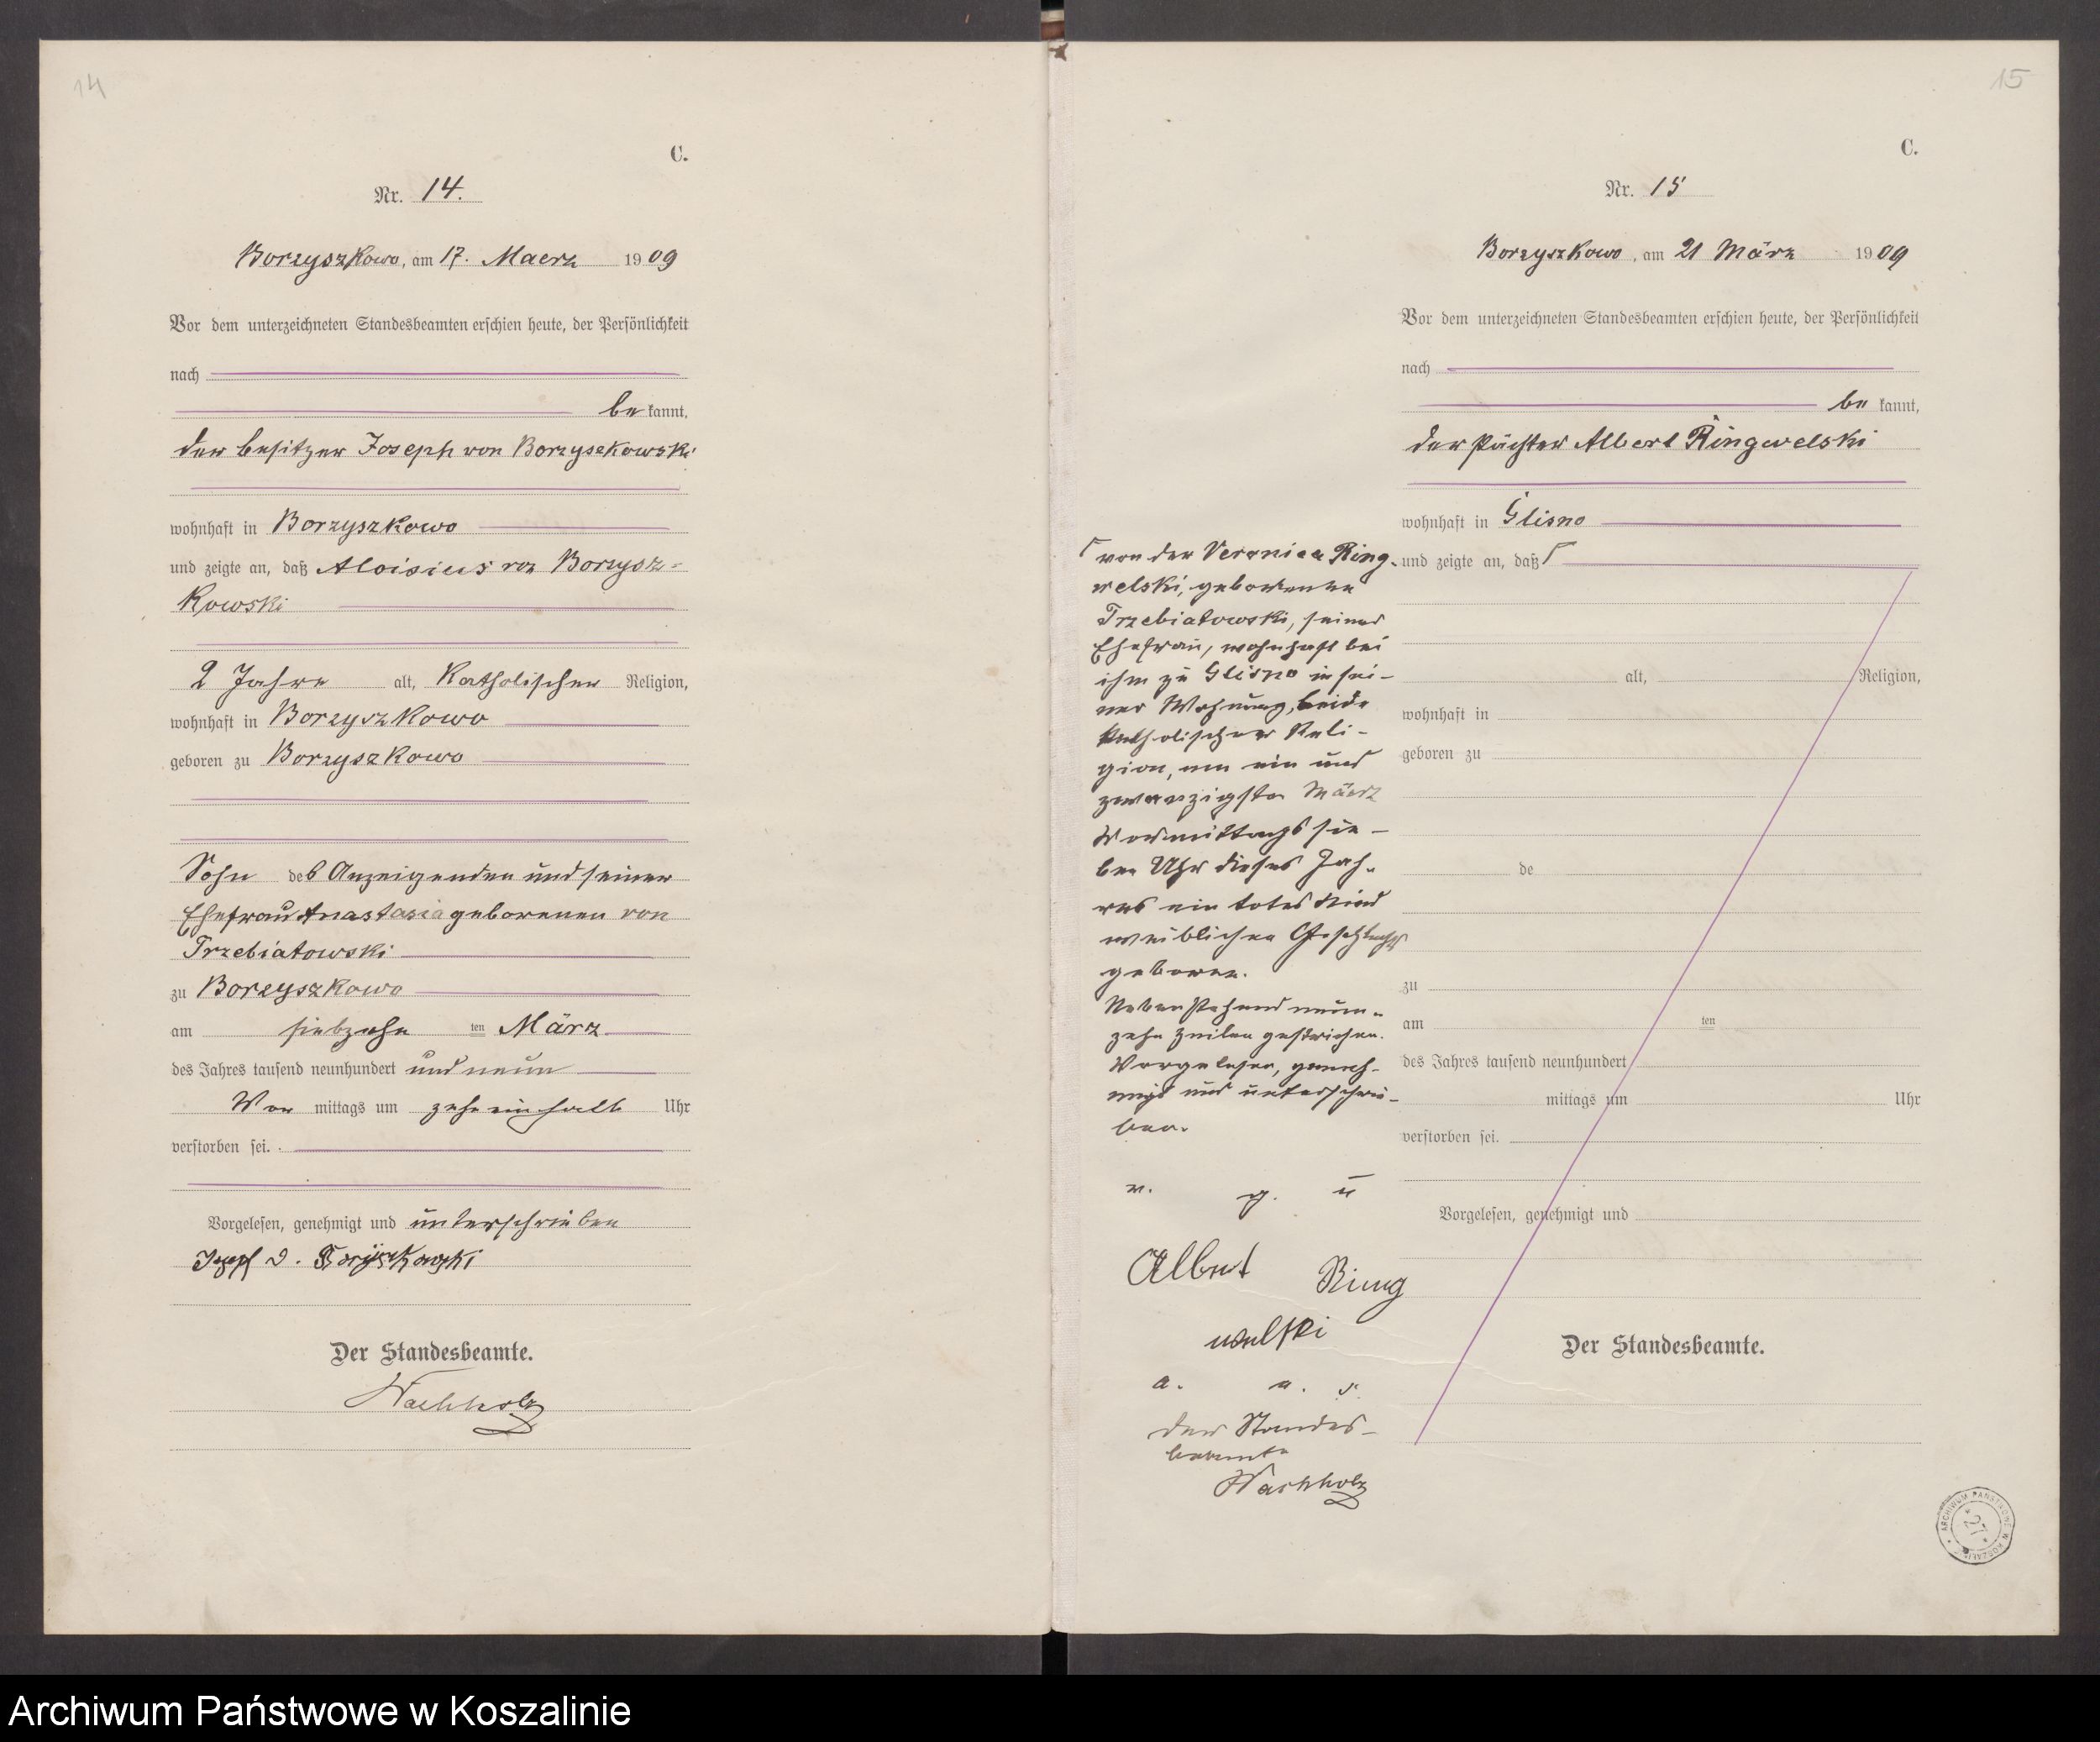 14
C.
Nr. 14.
Borzyszkowo, am 17. Maerz 1909
Vor dem unterzeichneten Standesbeamten erschien heute, der Persönlichkeit
nach
be kannt,
der Besitzer Joseph von Borzyszkowski
wohnhaft in Borzyszkowo
und zeigte an, daß Aloisius von Borzysz-
kowski
2 Jahre alt, katholischer Religion,
wohnhaft in Borzyszkowo
geboren zu Borzyszkowo
Sohn des Anzeigenden und seiner
Ehefrau Anastasia geborenen von
Trzebiatowski
zu Borzyszkowo
am siebzehn ten März
des Jahres tausend neunhundert und neun
Vor mittags um zehn ein halb Uhr
verstorben sei.
Vorgelesen, genehmigt und unterschrieben
Josef v. Borzyszkowski
Der Standesbeamte.
Wachholz
15
C.
Nr. 15
Borzyszkowo, am 21 März 1909
Vor dem unterzeichneten Standesbeamten erschien heute, der Persönlichkeit
nach
be kannt,
der Pächter Albert Ringwelski
wohnhaft in Glisno
und zeigte an, daß
von der Veronica Ring-
welski, geborenen
Trzebiatowski, seiner
Ehefrau, wohnhaft bei
ihm zu Glisno in sei-
ner Wohnung, beide
katholischer Reli-
gion, am ein und
zwanzigsten März
Vormittags sie-
ben Uhr dieses Jah-
res ein totes Kind
weiblichen Geschlechts
geboren.
Nebenstehend neun-
zehn Zeilen gestrichen.
Vorgelesen, geneh-
migt und unterschrie-
ben.
v. g. u
Albert Ring
welski
a. u. s.
der Standes-
beamte
Wachholz
alt, Religion,
wohnhaft in
geboren zu
de
zu
am ten
des Jahres tausend neunhundert
mittags um Uhr
verstorben sei.
Vorgelesen, genehmigt und
Der Standesbeamte.
ARCHIWUM PAŃSTWOWE W KOSZALINIE
27
Archiwum Państwowe w Koszalinie